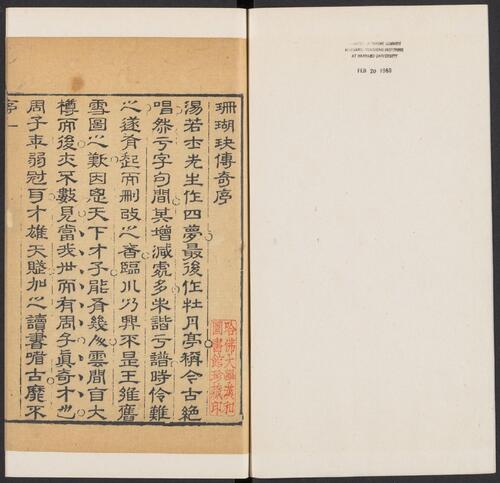 珊瑚玦傳奇序
湯若士先生作四夢最後作牡丹亭稱今古絕
唱然亏字句間其增減處多未諧亏譜時伶難
之遂有起而刪改之者臨川乃興不是王維舊
雪圖之歎因思天下才子能有幾人雲間自大
樽而後文不數見當我世而有周子真奇才也
周子年弱冠耳才雄天賤加之讀書嗜古靡不
序一
哈佛大學漢和
圖書館珍藏印
HARVARD-YENCHING INSTITUTE
AT HARVARD UNIVERSITY
FEB 20 1960